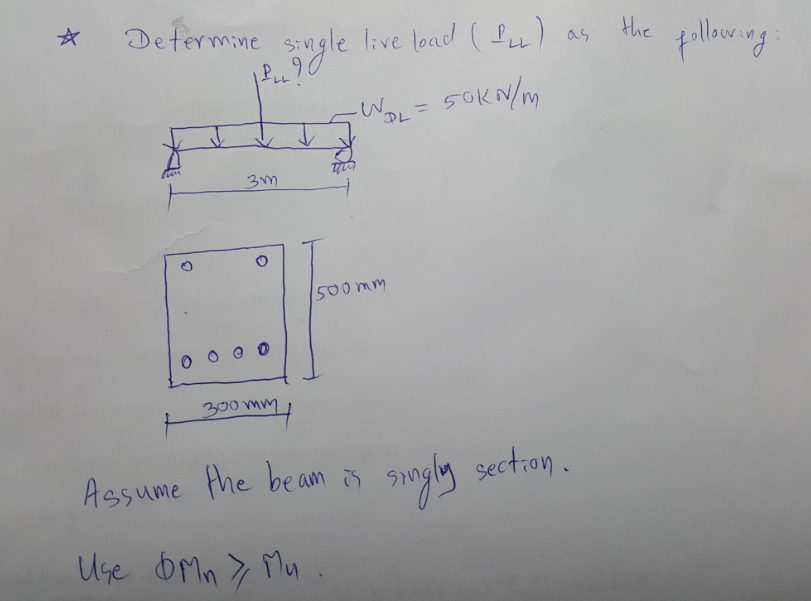 ☆ Determine single live load (P_LL) as the following:
P_LL?
W_DL = 50KN/m
3m
500mm
300mm
Assume the beam is singly section.
Use ΦMn ≥ Mu.